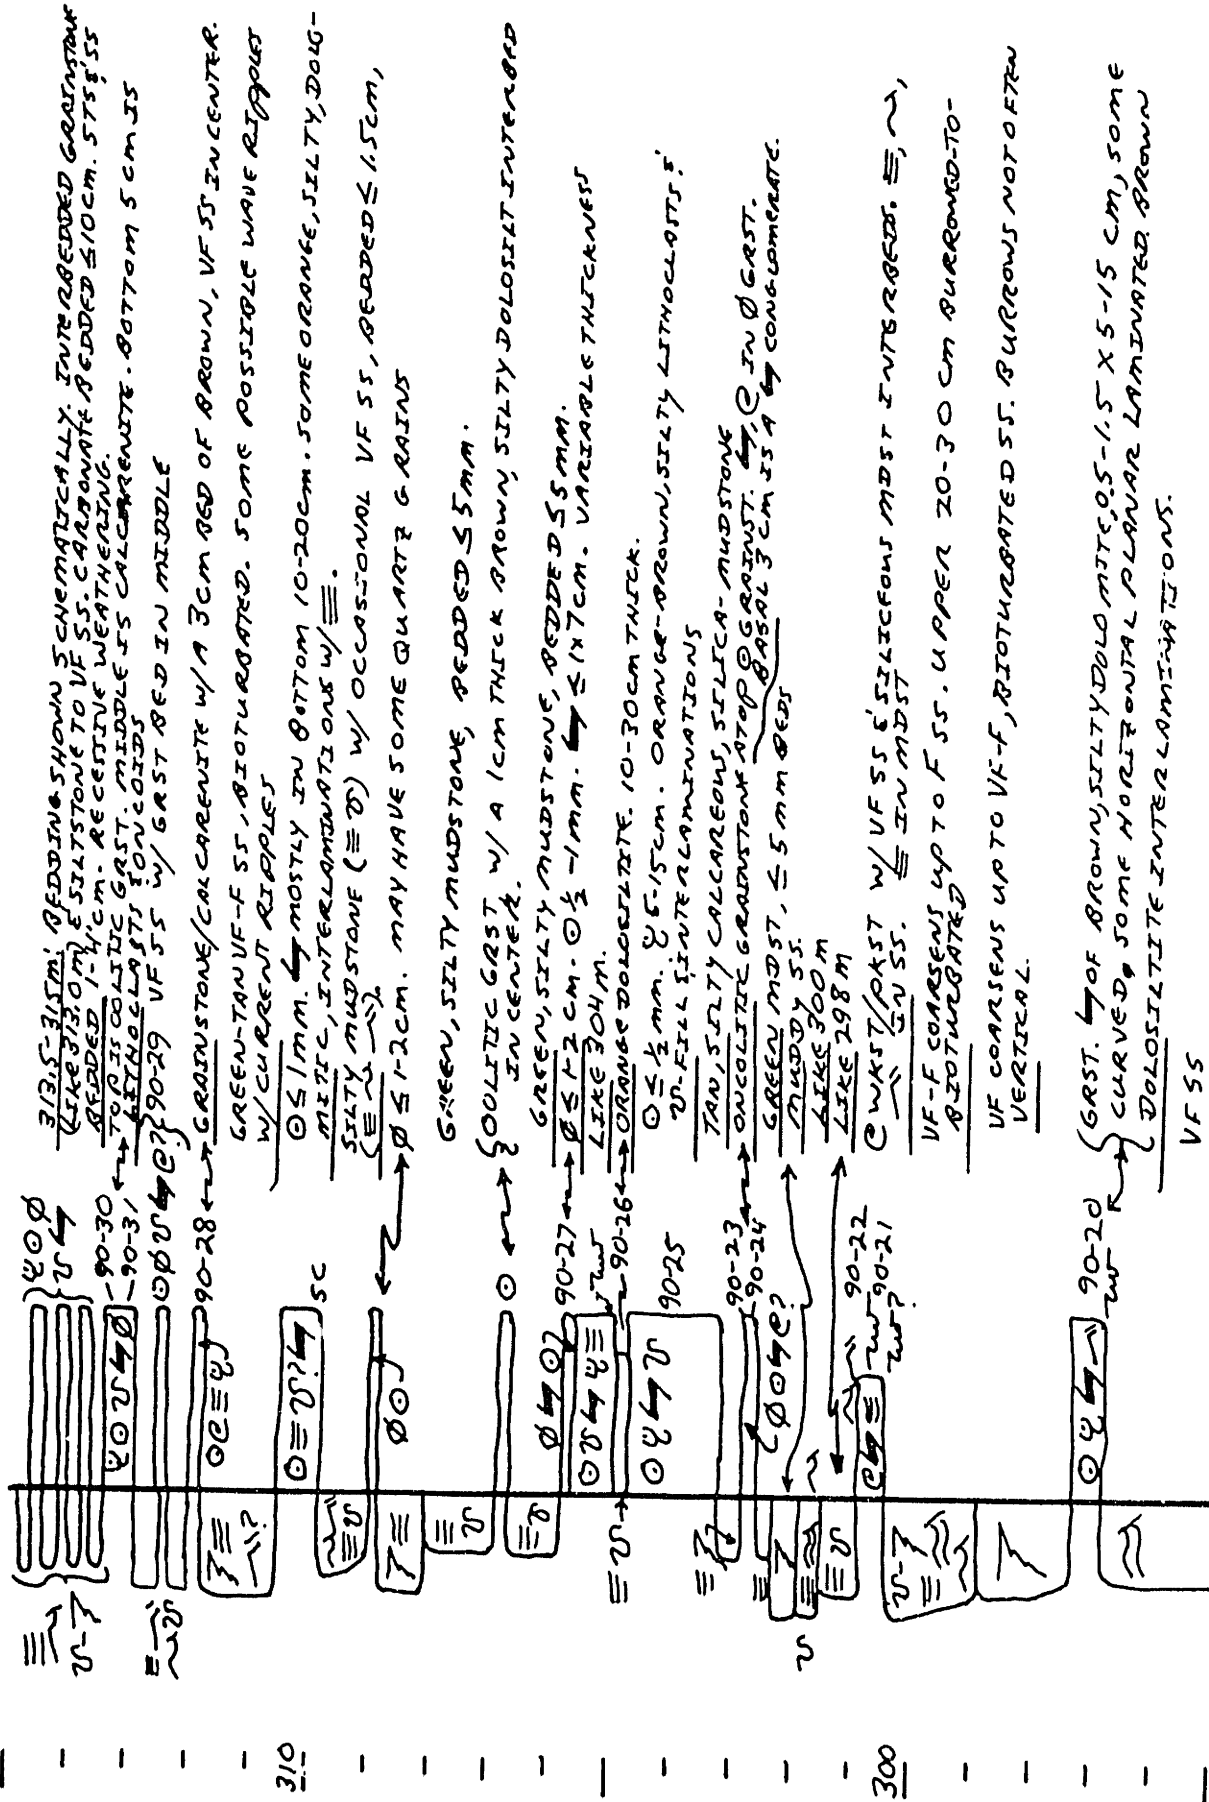 313.5-315m: BEDDING SHOWN SCHEMATICALLY. INTERBEDDED GRAINSTONE
(LIKE 313.0m) & SILTSTONE TO VF SS. CARBONATE BEDDED ≤10CM. STS & SS
BEDDED 1-4 CM. RECESSIVE WEATHERING.
90-30
90-31
TOP IS OOLITIC GRST. MIDDLE IS CALCARENITE. BOTTOM 5 CM IS
LITHOCLASTS & ONCOIDS
90-29 VF SS W/ GRST BED IN MIDDLE
90-28
GRAINSTONE/CALCARENITE W/ A 3CM BED OF BROWN, VF SS IN CENTER.
GREEN-TAN VF-F SS, BIOTURBATED. SOME POSSIBLE WAVE RIPPLES
W/ CURRENT RIPPLES
310
SC
⊙ ≤ 1MM. MOSTLY IN BOTTOM 10-20CM. SOME ORANGE, SILTY, DOLO-
MITIC, INTERLAMINATIONS W/ ≡.
SILTY MUDSTONE (≡ ʋ) W/ OCCASIONAL VF SS, BEDDED ≤ 1.5CM,
Ø ≤ 1-2CM. MAY HAVE SOME QUARTZ GRAINS
GREEN, SILTY MUDSTONE, BEDD ≤ 5MM.
OOLITIC GRST W/ A 1CM THICK BROWN, SILTY DOLOSILT INTERBED
IN CENTER.
GREEN, SILTY MUDSTONE, BEDDED ≤ 5MM.
90-27
Ø ≤ 1-2 CM. ⊙ ½-1MM. ≤ 1X7CM. VARIABLE THICKNESS
LIKE 304 M.
90-26
ORANGE DOLOSILTITE. 10-30CM THICK.
90-25
⊙ ≤ ½ MM. 5-15CM. ORANGE-BROWN, SILTY LITHOCLASTS &
ʋ-FILLS, INTERLAMINATIONS
TAN, SILTY CALCAREOUS, SILICA-MUDSTONE
90-23
90-24
ONCOLITIC GRAINSTONE ATOP ⊙ GRAINST. IN Ø GRST.
BASAL 3 CM IS A CONGLOMERATE.
GREEN MDST, ≤ 5 MM BEDS
MUDDY SS.
LIKE 300 M
LIKE 298 M
90-22
90-21
WKST/PKST W/ VF SS & SILICEOUS MDST INTERBEDS. ≡, ~,
IN SS. ≡ IN MDST
300
VF-F COARSENS UP TO F SS. UPPER 20-30 CM BURROWED-TO-
BIOTURBATED
VF COARSENS UP TO VF-F, BIOTURBATED SS. BURROWS NOT OFTEN
VERTICAL.
90-20
GRST. OF BROWN, SILTY DOLOMITE, 0.5-1.5 X 5-15 CM, SOME
CURVED, SOME HORIZONTAL PLANAR LAMINATED. BROWN
DOLOSILTITE INTERLAMINATIONS.
VF SS